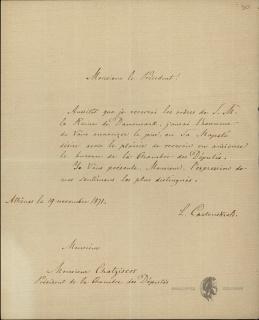 Monsieur le Président!
Aussitôt que je recevrai les ordres de S. M.
la Reine de Danemark, j'aurai l'honneur
de Vous annoncer le jour, où Sa Majesté
aura le plaisir de recevoir en audience
le bureau de la Chambre des Députés.
Je Vous présente, Monsieur, l'expression de
mes sentimens les plus distingués.
Athènes le 19 novembre 1871.
Monsieur
Monsieur
Président de la Chambre des Députés